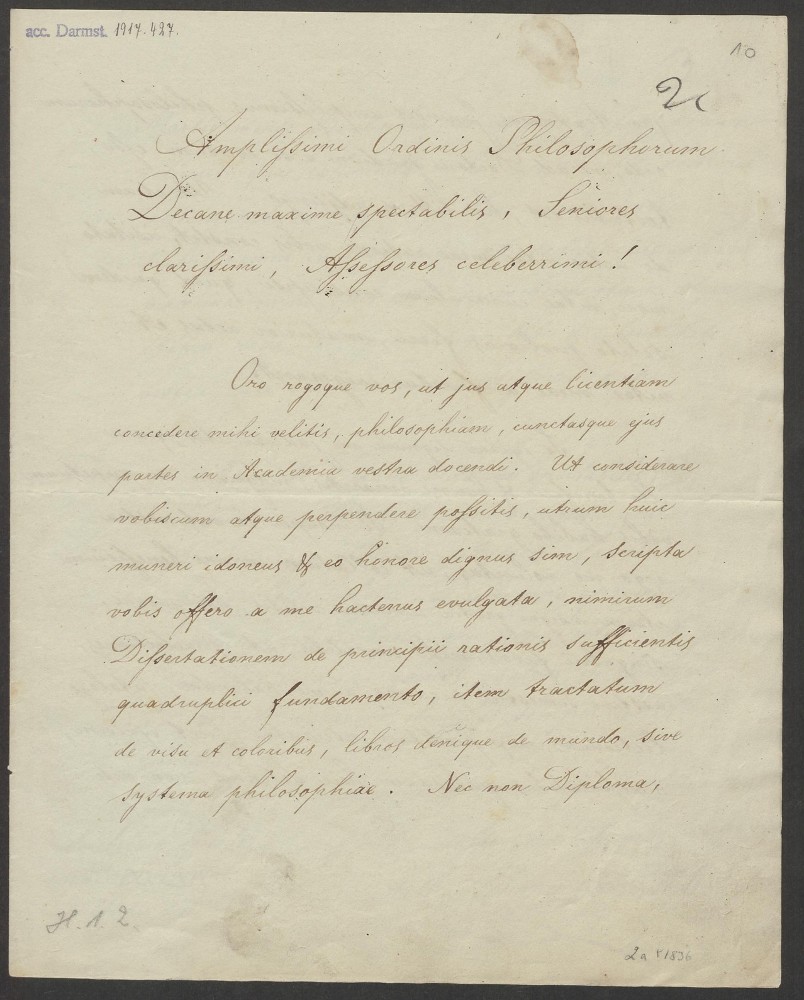 acc. Darmst. 1917.427.
10
Amplissimi Ordinis Philosophorum
Decane maxime spectabilis, Seniores
clarissimi, Assessores celeberrimi!
Oro rogoque vos, ut jus atque licentiam
concedere mihi velitis, philosophiam, cunctasque ejus
partes in Academia vestra docendi. Ut considerare
vobiscum atque perpendere possitis, utrum huic
muneri idoneus & eo honore dignus sim, scripta
vobis offero a me hactenus evulgata, nimirum
Dissertationem de principii rationis sufficientis
quadruplici fundamento, item tractatum
de visu et coloribus, libros denique de mundo, sive
systema philosophiae. Nec non Diploma,
H. 1. 2.
2a 1836